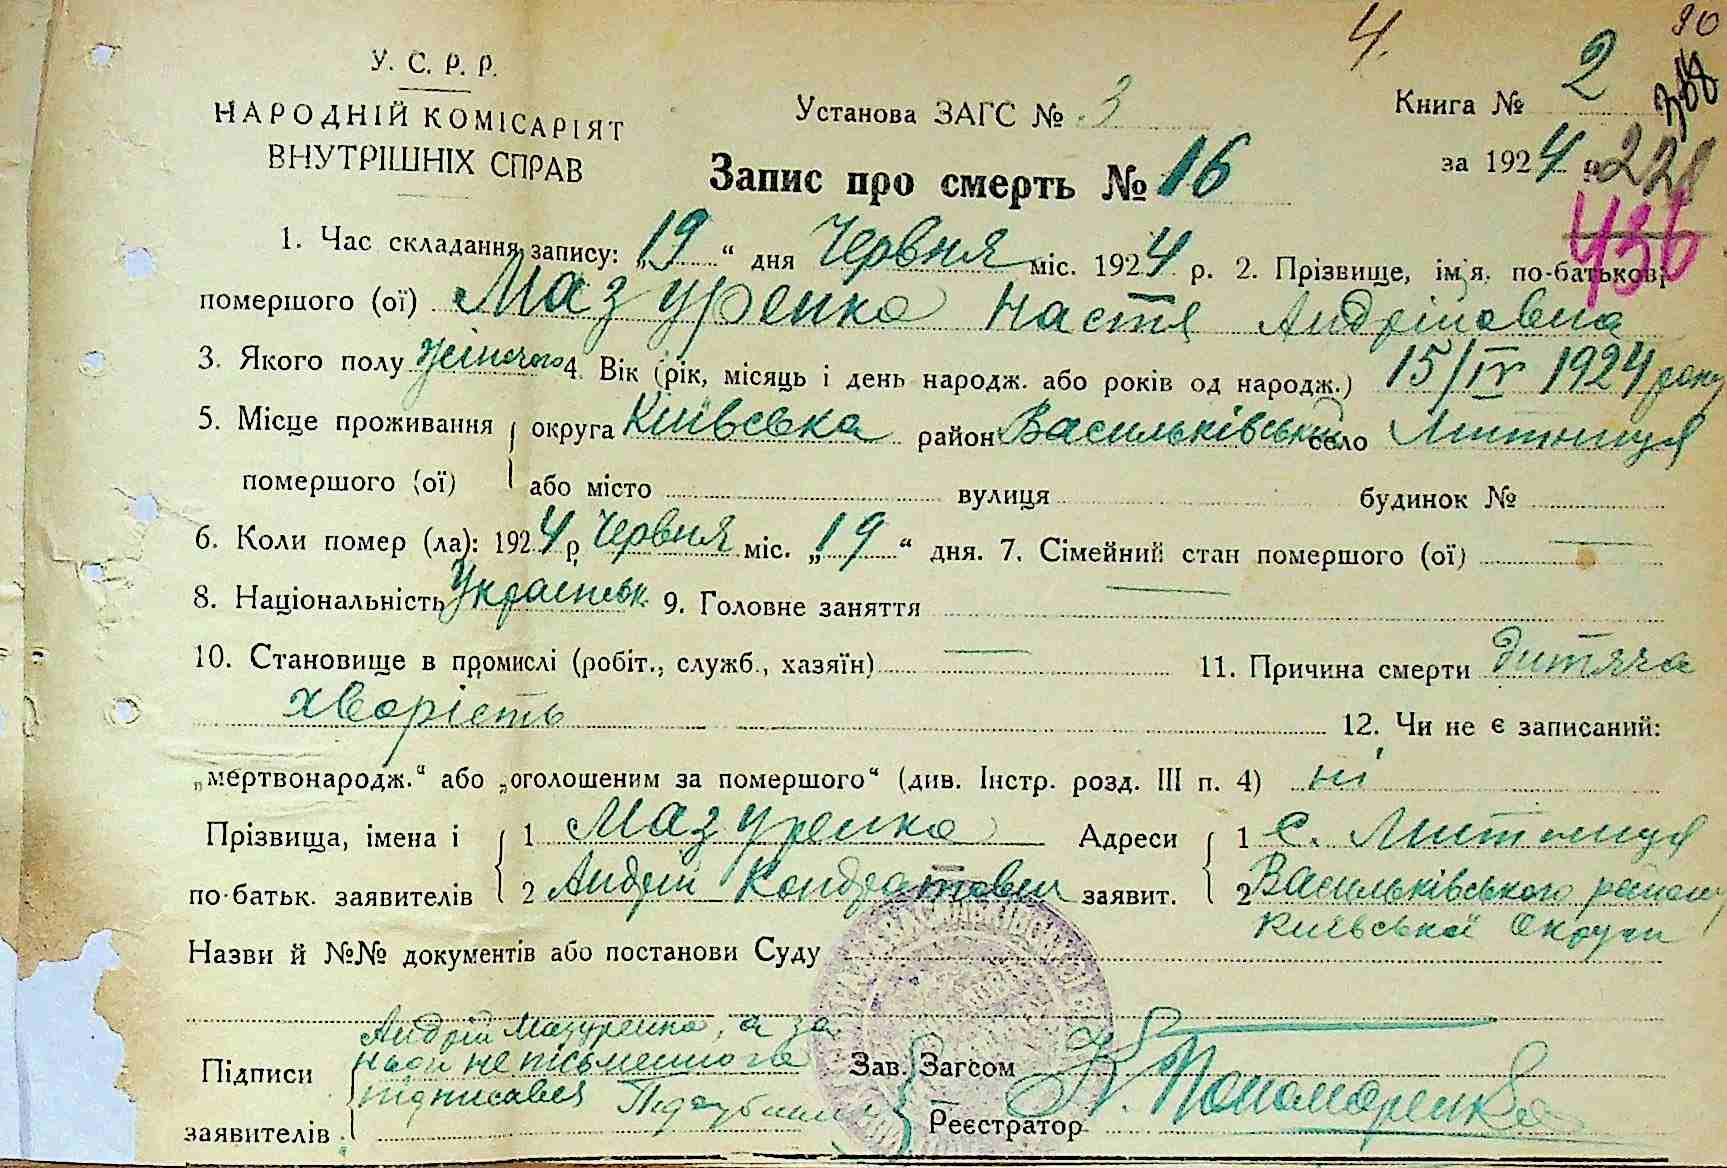 4.
90
388
У. С. Р. Р.
НАРОДНІЙ КОМІСАРІЯТ
ВНУТРІШНІХ СПРАВ
Установа ЗАГС № 3
Книга № 2
за 1924 р. 221
436
Запис про смерть № 16
1. Час складання запису: „19“ дня Червня міс. 1924 р. 2. Прізвище, ім'я, по-батькові
помершого (ої) Мазуренко Настя Андріївна
3. Якого полу жіночого 4. Вік (рік, місяць і день народж. або років од народж.) 15/IV 1924 року
5. Місце проживання округа Київська район Васильківський село Митниця
помершого (ої) або місто вулиця будинок №
6. Коли помер (ла): 1924 р Червня міс. „19“ дня. 7. Сімейний стан помершого (ої) —
8. Національність Українськ. 9. Головне заняття —
10. Становище в промислі (робіт., служб., хазяїн) — 11. Причина смерти дитяча
хворість 12. Чи не є записаний:
„мертвонародж.“ або „оголошеним за помершого“ (див. Інстр. розд. III п. 4) ні
Прізвища, імена і 1 Мазуренко Адреси 1 с. Митниця
по-батьк. заявителів 2 Андрій Кондратович заявит. 2 Васильківського району
Київської Округи
Назви й №№ документів або постанови Суду
Андрій Мазуренко, а за
Підписи неписьменного Зав. Загсом
підписався
заявителів Реєстратор Пономаренко